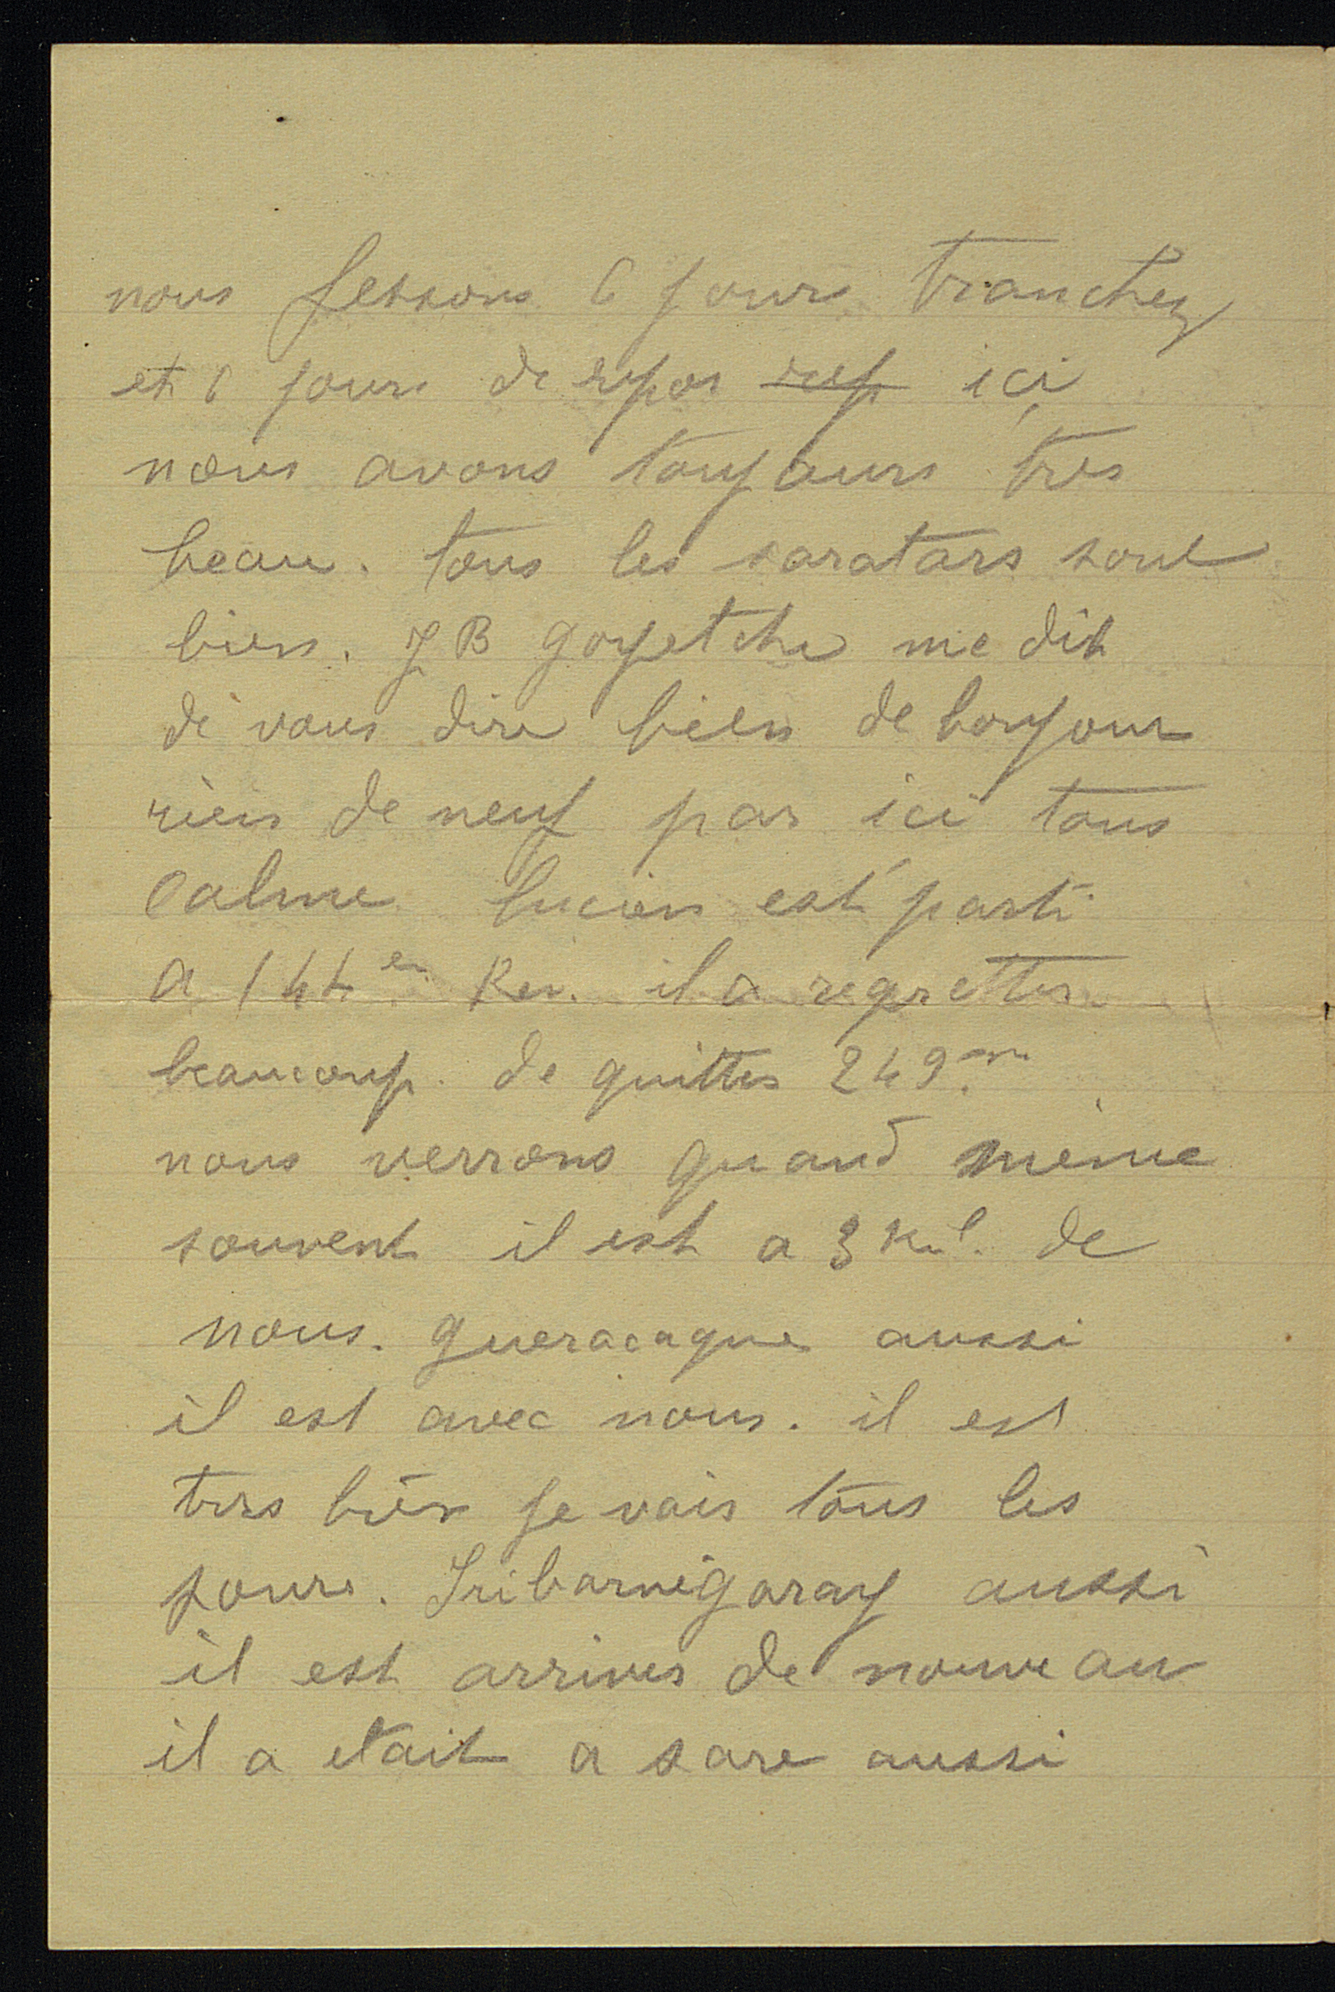 nous fessons 6 jours tranchez
et 6 jours de repos rep ici
nous avons toujours tres
beau. tous les saratars sont
bien. JB goyetche me dit
de vous dire bien de bonjour
rien de neuf par ici tous
Calme lucien est parti
a 144e Rei. il a regretter
beaucoup. de quitter 249.m
nous verrons quand même
souvent il est a 3 Kil. de
nous. gueracague aussi
il est avec nous. il est
tres bien je vois tous les
jours. Iribarnégaray aussi
il est arriver de nouveau
il a etait a sare aussi